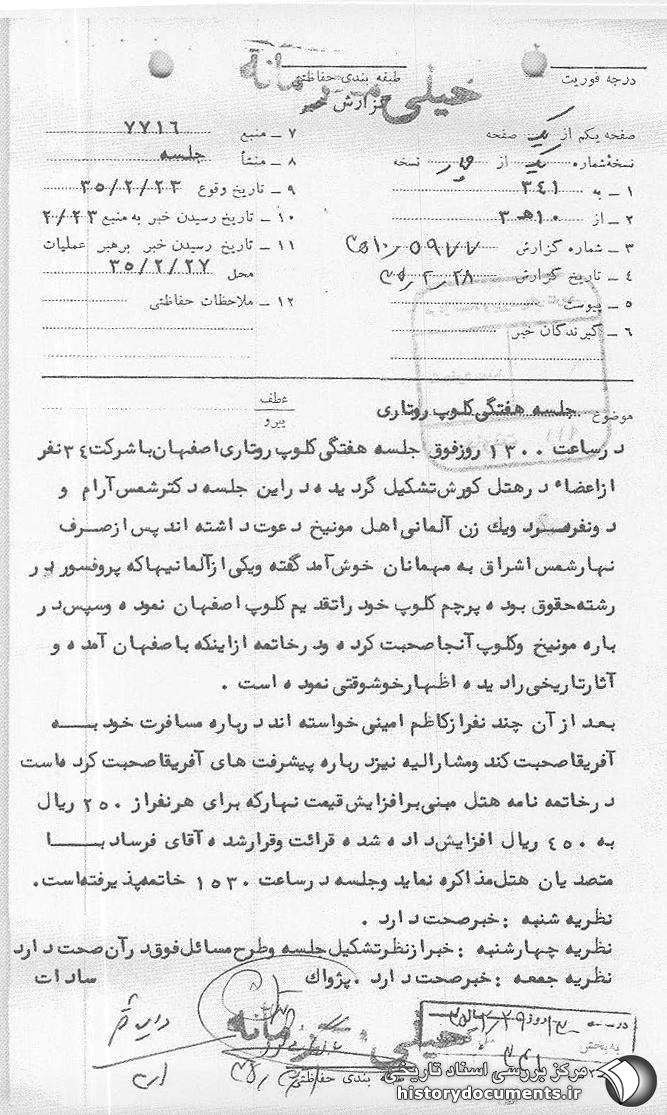 درجه فوریت
طبقه بندی حفاظتی
خیلی محرمانه
گزارش خبر
صفحه یکم از یک صفحه
نسخه شماره یک از چهار نسخه
۱ ـ به ۳۴۱
۲ ـ از ۱۰ هـ ۳
۳ ـ شماره گزارش ۵۹۷۷ / ۱۰هـ۳
۴ ـ تاریخ گزارش ۳۵/۲/۲۸
۵ ـ پیوست
۶ ـ گیرندگان خبر
۷ ـ منبع ۷۷۱۶
۸ ـ منشأ جلسه
۹ ـ تاریخ وقوع ۳۵/۲/۲۳
۱۰ ـ تاریخ رسیدن خبر به منبع ۲/۲۳
۱۱ ـ تاریخ رسیدن خبر برهبر عملیات
محل ۳۵/۲/۲۷
۱۲ ـ ملاحظات حفاظتی
موضوع جلسه هفتگی کلوپ روتاری
عطف
پیرو
درساعت ۱۳۰۰ روزفوق جلسه هفتگی کلوپ روتاری اصفهان باشرکت ۳۴نفر
ازاعضاء درهتل کورش تشکیل گردیده دراین جلسه دکترشمس آرام و
دونفرمرد ویك زن آلمانی اهل مونیخ دعوت داشته اند پس ازصرف
نهارشمس اشراق به مهمانان خوش آمد گفته ویکی ازآلمانیهاکه پروفسور در
رشته حقوق بوده پرچم کلوپ خود راتقدیم کلوپ اصفهان نموده وسپس در
باره مونیخ وکلوپ آنجا صحبت کرده ودرخاتمه ازاینکه باصفهان آمده و
آثارتاریخی رادیده اظهارخوشوقتی نموده است .
بعد ازآن چند نفرازکاظم امینی خواسته اند درباره مسافرت خود بــه
آفریقا صحبت کند ومشارالیه نیزدرباره پیشرفت های آفریقا صحبت کرده است
درخاتمه نامه هتل مبنی برافزایش قیمت نهارکه برای هرنفراز ۲۵۰ ریال
به ۴۵۰ ریال افزایش داده شده قرائت وقرارشده آقای فرساد بــا
متصدیان هتل مذاکره نماید وجلسه درساعت ۱۵۳۰ خاتمه پذیرفته است.
نظریه شنبه : خبرصحت دارد .
نظریه چهارشنبه : خبرازنظرتشکیل جلسه وطرح مسائل فوق درآن صحت دارد
نظریه جمعه : خبرصحت دارد . پژواك سادات
خیلی محرمانه
بندی حفاظتی
به بخش
۳۴۱
مرکز بررسی اسناد تاریخی
historydocuments.ir